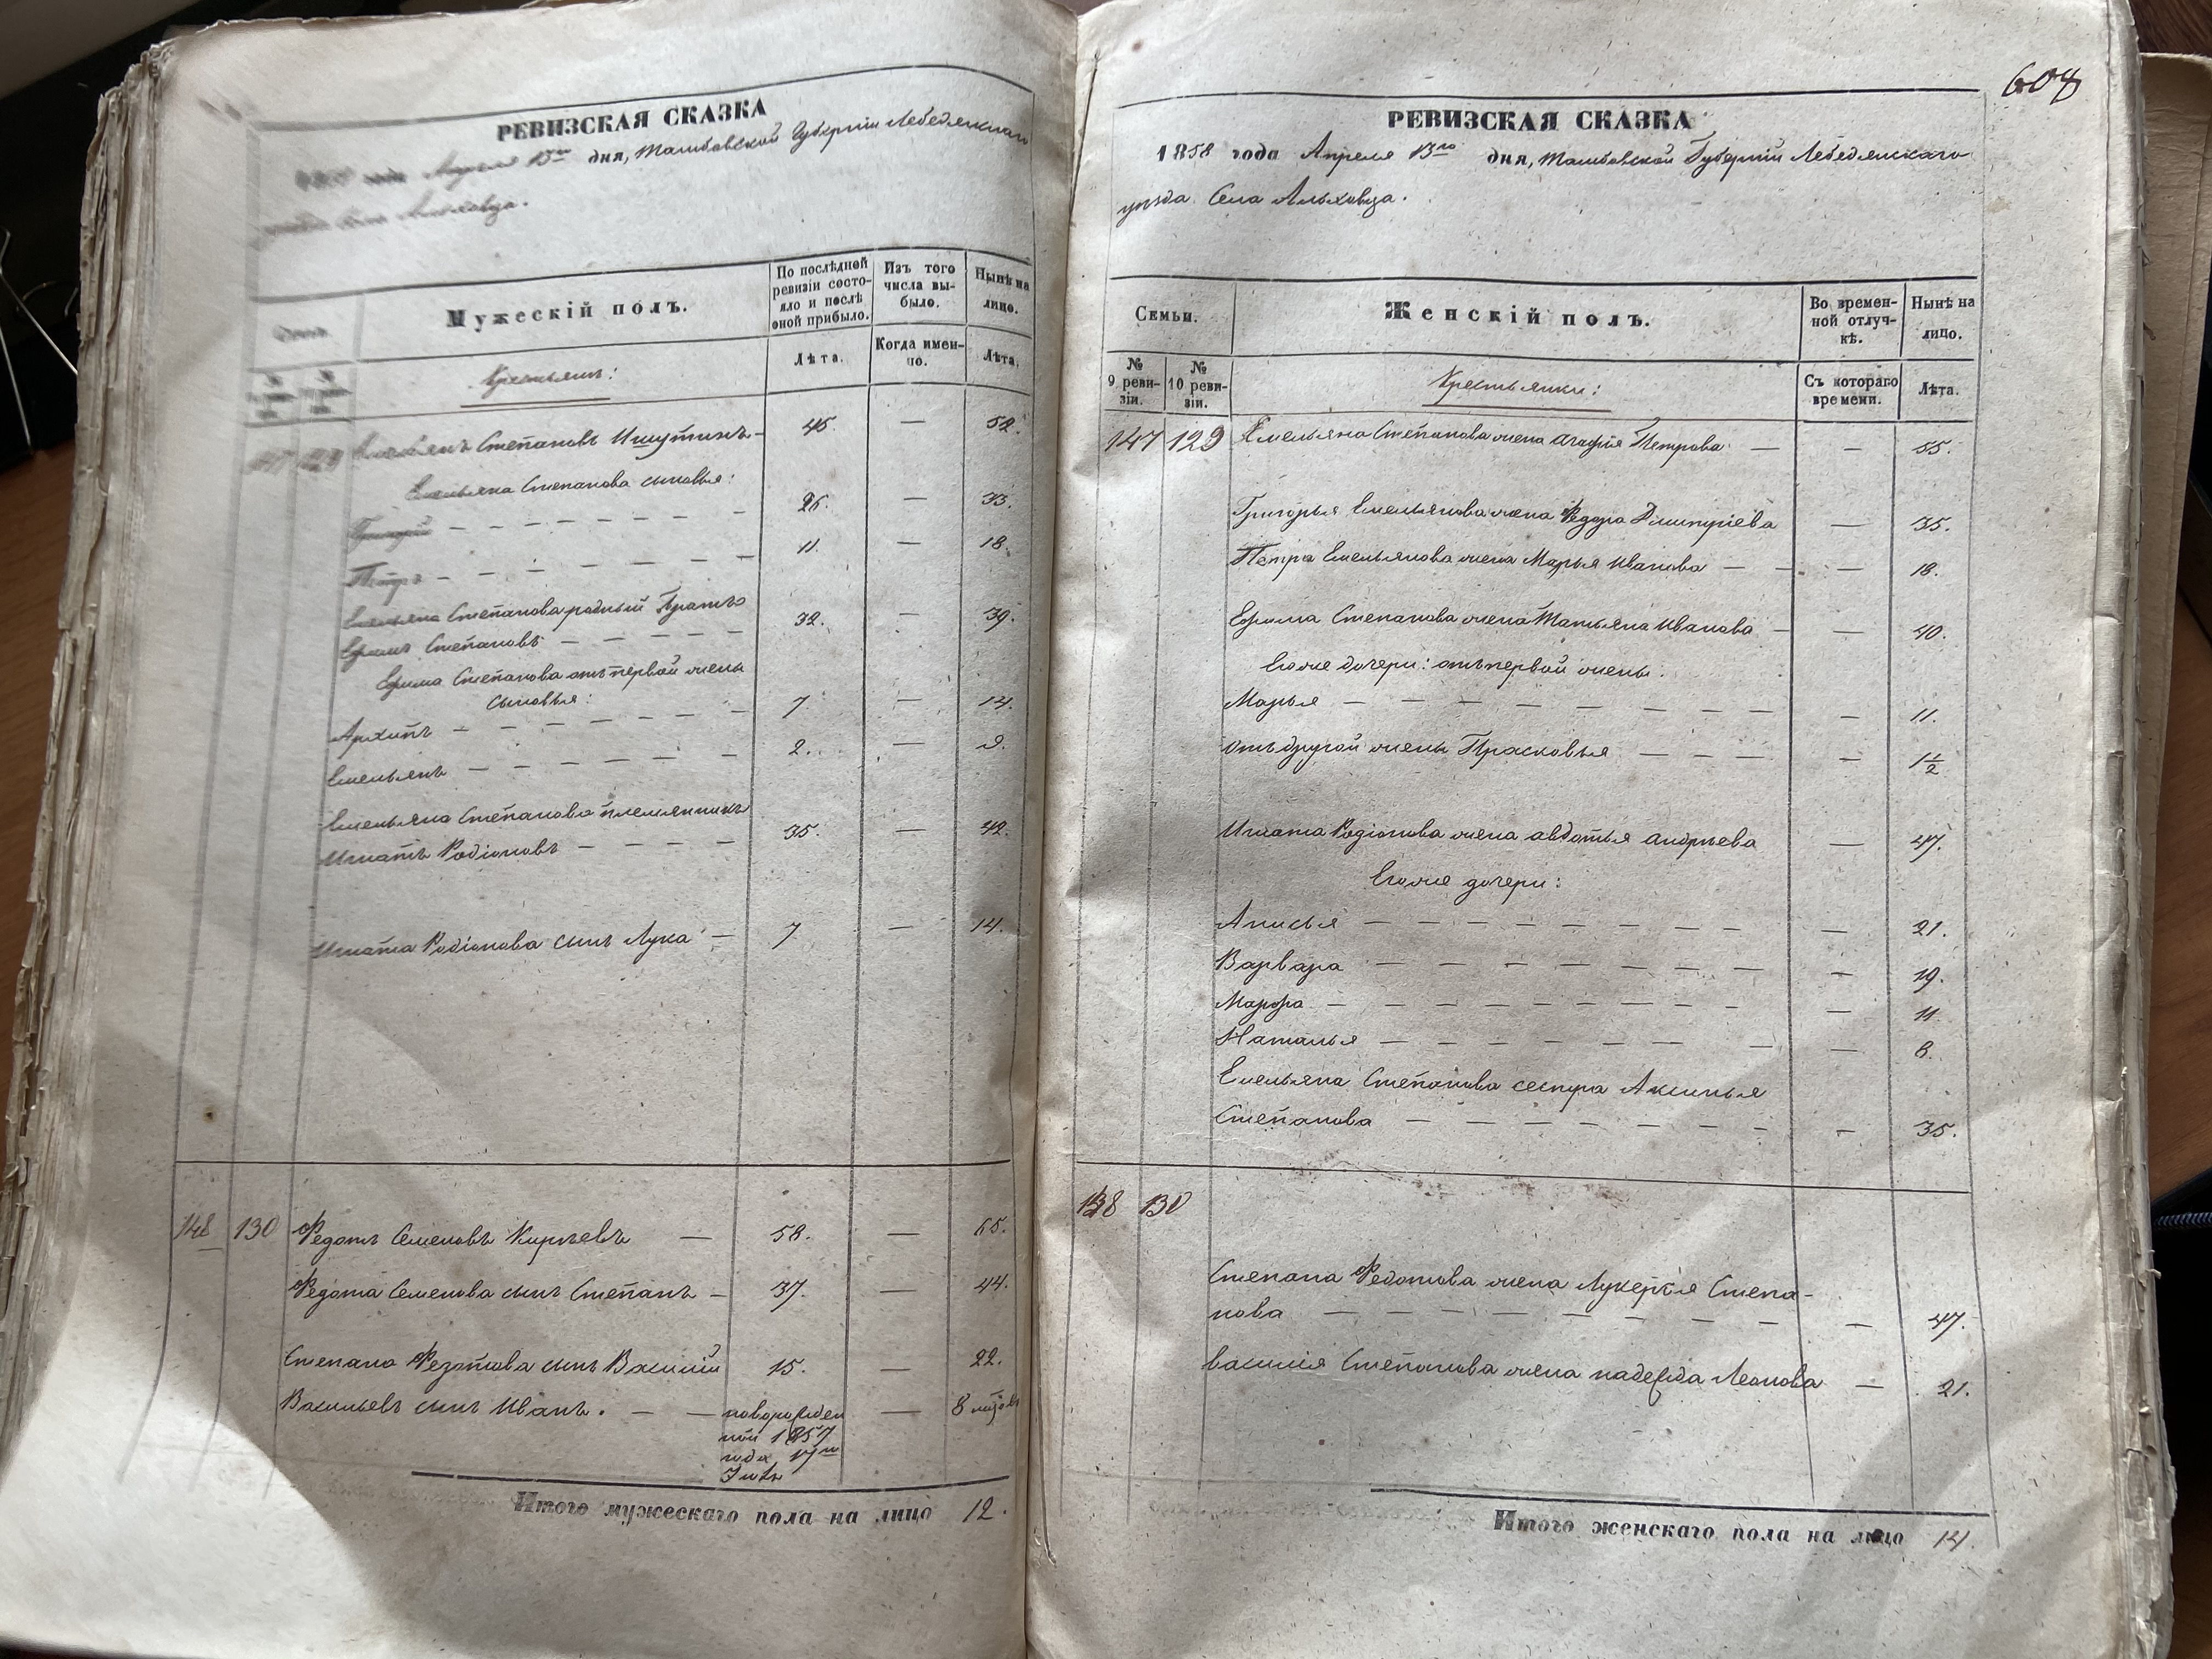 РЕВИЗСКАЯ СКАЗКА
Апреля 13го дня, Тамбовской Губернiи Лебедянскаго
уѣзда Села Альховца.
Мужескiй полъ.
По послѣдней ревизiи состояло и послѣ оной прибыло.
Изъ того числа выбыло.
Нынѣ на лицо.
Лѣта.
Когда именно.
Лѣта.
Крестьяне:
147 129 Емельянъ Степановъ Ишутинъ - 45. — 52.
Емельяна Степанова сыновья:
Григорiй — 26. — 33.
Петръ — 11. — 18.
Емельяна Степанова родный братъ
Ефимъ Степановъ — 32. — 39.
Ефима Степанова отъ первой жены
сыновья:
Архипъ — 7. — 14.
Емельянъ — 2. — 9.
Емельяна Степанова племянникъ
Игнатъ Родiоновъ — 35. — 42.
Игната Родiонова сынъ Лука — 7 — 14.
148 130 Федотъ Семеновъ Кирѣевъ — 58. — 65.
Федота Семенова сынъ Степанъ — 37. — 44.
Степана Федотова сынъ Василiй 15. — 22.
Васильевъ сынъ Иванъ. — новорожден — 8
ной 1857
года 17го
Итого мужескаго пола на лицо 12.
608
РЕВИЗСКАЯ СКАЗКА
1858 года Апреля 13го дня, Тамбовской Губернiи Лебедянскаго
уѣзда Села Альховца.
Семьи.
Женскiй полъ.
Во временной отлучкѣ.
Нынѣ на лицо.
№ 9 ревизiи.
№ 10 ревизiи.
Съ котораго времени.
Лѣта.
Крестьянки:
147 129 Емельяна Степанова жена Агафiя Петрова — — 55.
Григорья Емельянова жена Федора Дмитрiева — 35.
Петра Емельянова жена Марья Иванова — — 18.
Ефима Степанова жена Татьяна Иванова — — 40.
Егоже дочери: отъ первой жены.
Марья — — 11.
отъ другой жены Прасковья — — 1½
Игната Родiонова жена авдотья андрѣева — 47.
Егоже дочери:
Анисья — — 21.
Варвара — — 19.
Марфа — — 11
Наталья — — 8.
Емельяна Степанова сестра Аксинья
Степанова — — 35.
148 130
Степана Федотова жена Лукерья Степа-
нова — — 47.
василия Степанова жена надежда Леонова — 21.
Итого женскаго пола на лицо 14.